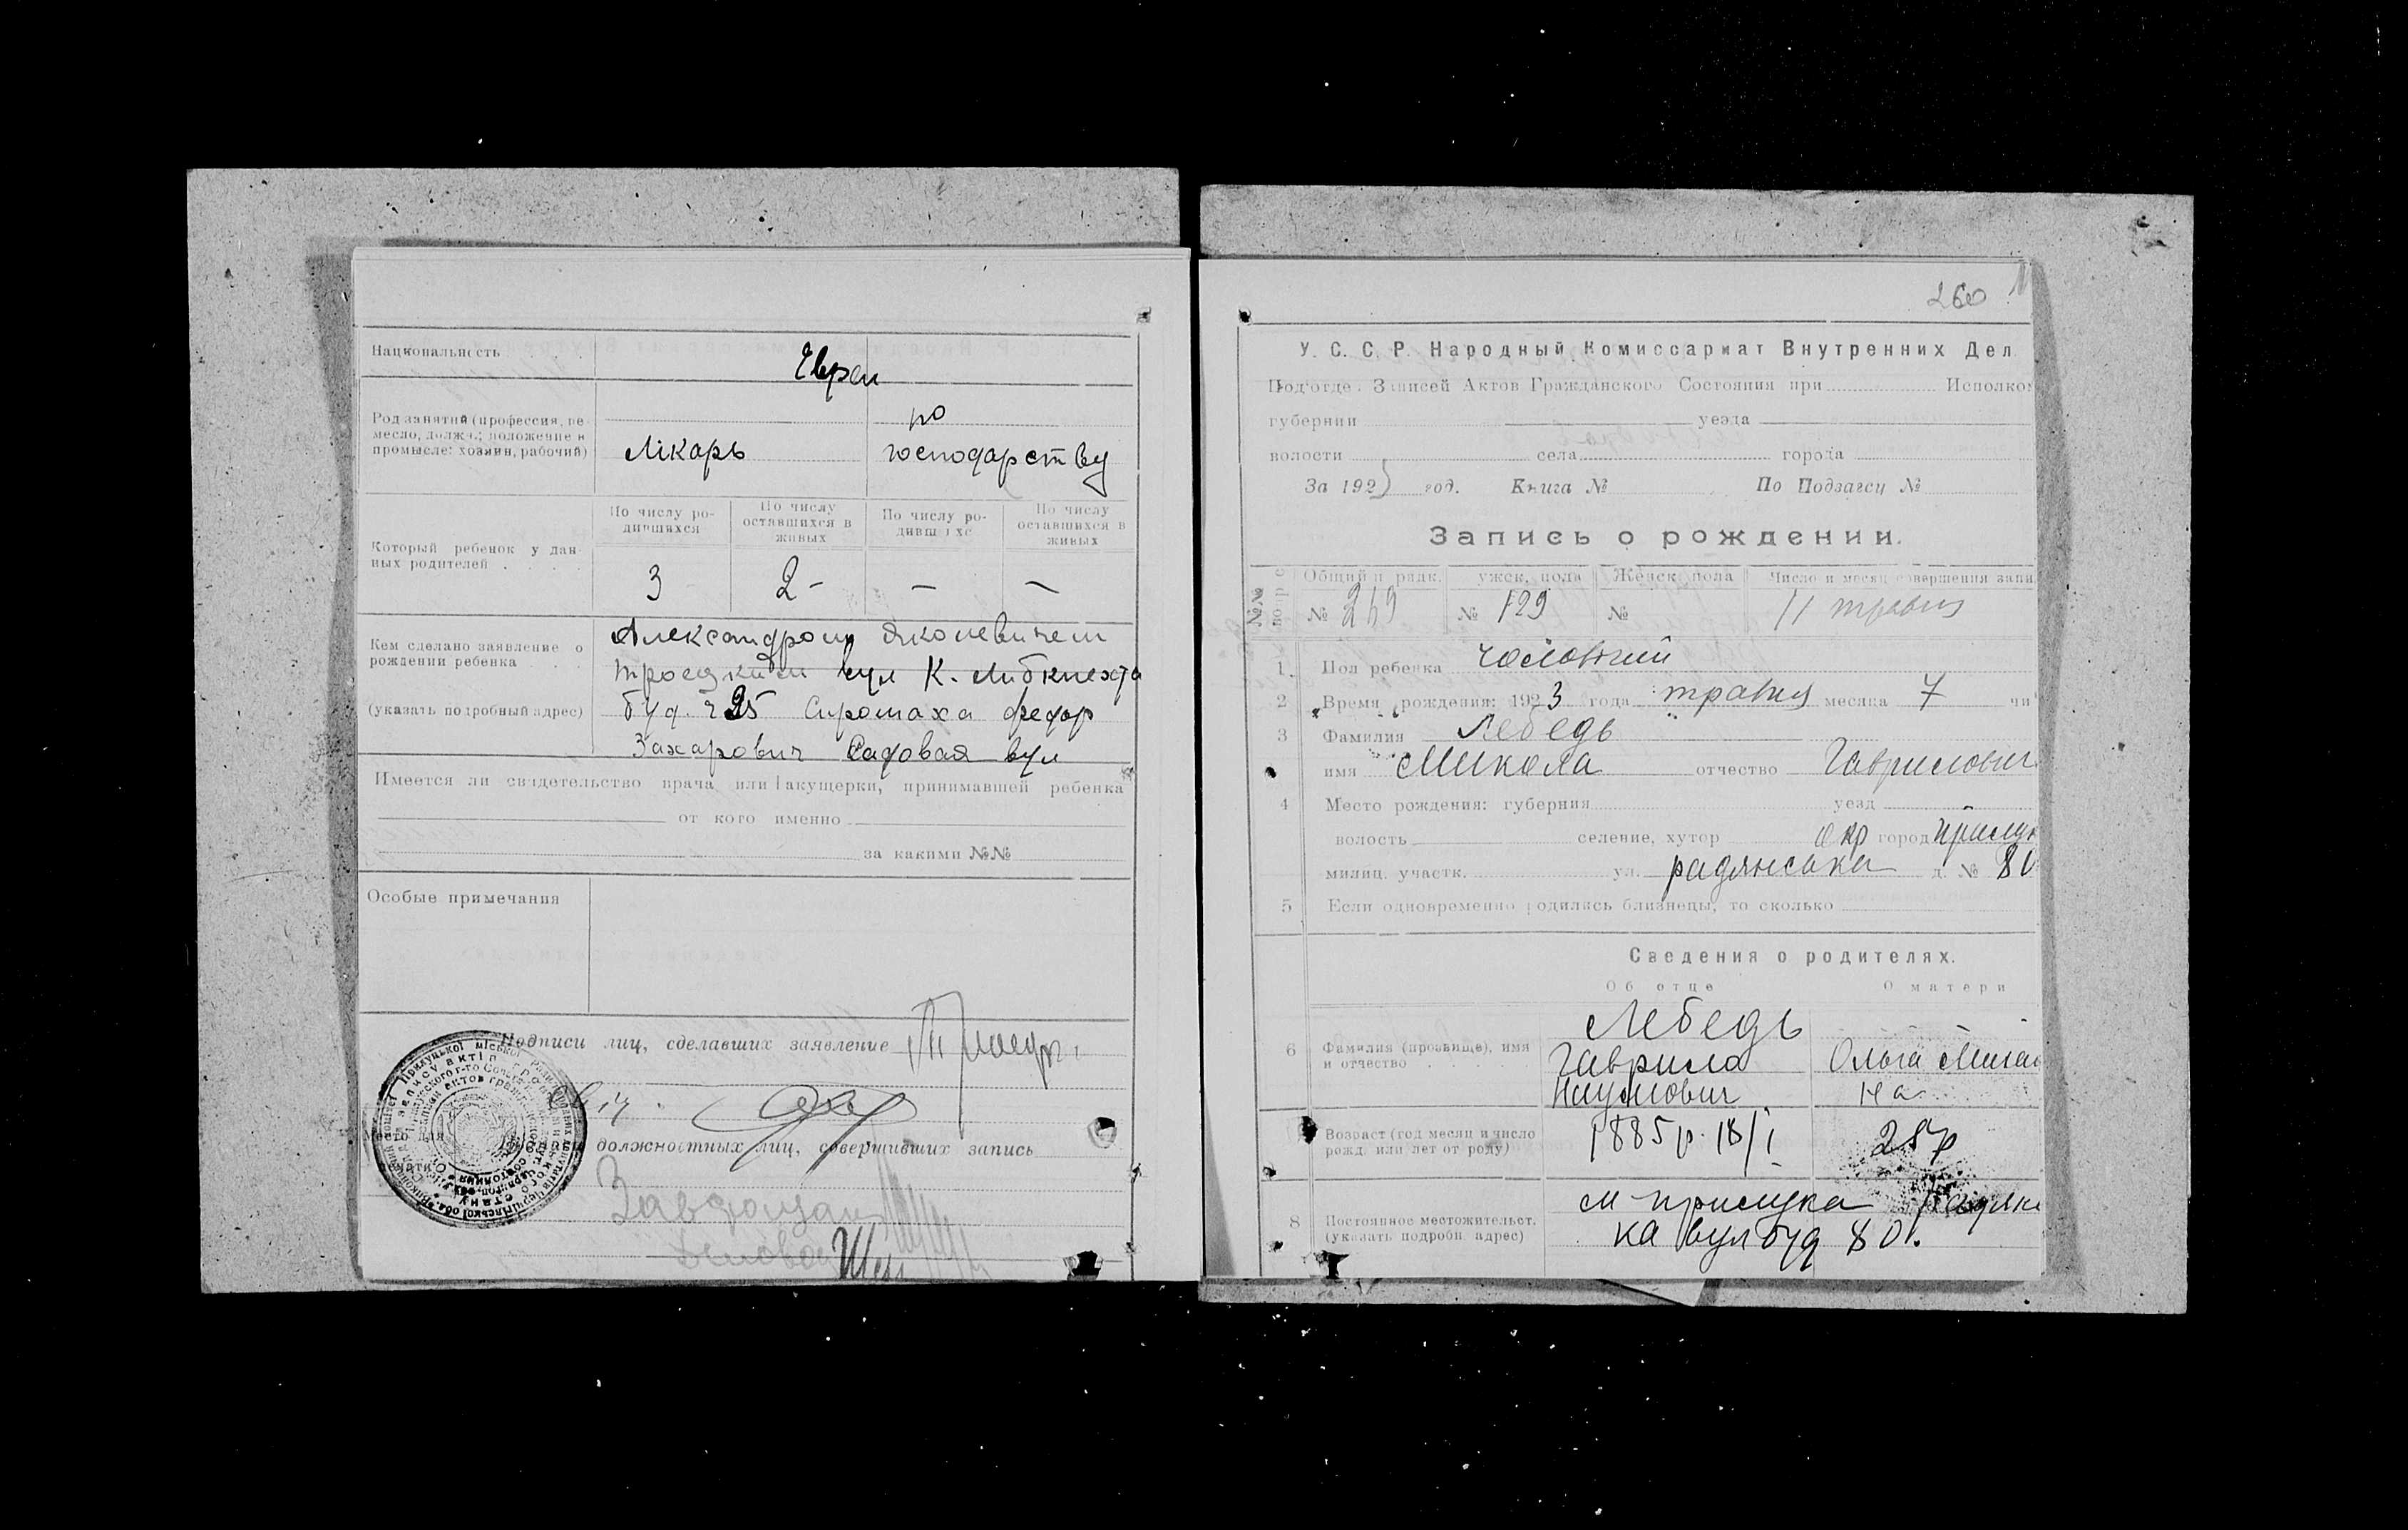 Национальность
Евреи
Род занятий (профессия, ре-
месло, должн.; положение в
промысле: хозяин, рабочий)
Лікарь
по
господарству
Который ребенок у дан-
ных родителей
По числу ро-
дившихся
По числу
оставшихся в
живых
По числу ро-
дивш
По числу
оставшихся в
живых
3
2 -
—
—
Кем сделано заявление о
рождении ребенка
(указать подробный адрес)
Александром
вул К. Либкнехта
буд. ч 25 Сиромаха Федор
Захарович Садовая вул
Имеется ли свидетельство врача или акушерки, принимавшей ребенка
от кого именно
за какими №№
Особые примечания
Подписи лиц, сделавших заявление
должностных лиц, совершивших запись
260
У. С. С. Р. Народный Комиссариат Внутренних Дел
Под'отде. Записей Актов Гражданского Состояния при Исполко
губернии уезда
волости села города
За 192 год. Книга № По Подзагсу №
Запись о рождении.
Общий п рядк. ужск. пола Женск пола Число и месяц совершения запи
№ 269 № 129 № 11 травня
1. Пол ребенка чоловічий
2 Время рождения: 1923 года травня месяца 7 чи
3 Фамилия Лебедь
имя Микола отчество Гаврилович
4 Место рождения: губерния уезд
волость селение, хутор окр город Прилук
милиц. участк. ул. радянська д. № 80
5 Если одновременно родились близнецы, то сколько
Сведения о родителях.
Об отце О матери
6 Фамилия (прозвище), имя
и отчество
Лебедь
Гаврила
Наумович
Ольга
на
Возраст (год месяц и число
рожд. или лет от роду)
1885 р. 18/I
28 р
8 Постоянное местожительст.
(указать подробн. адрес)
м Прилука
ка вул буд 80.